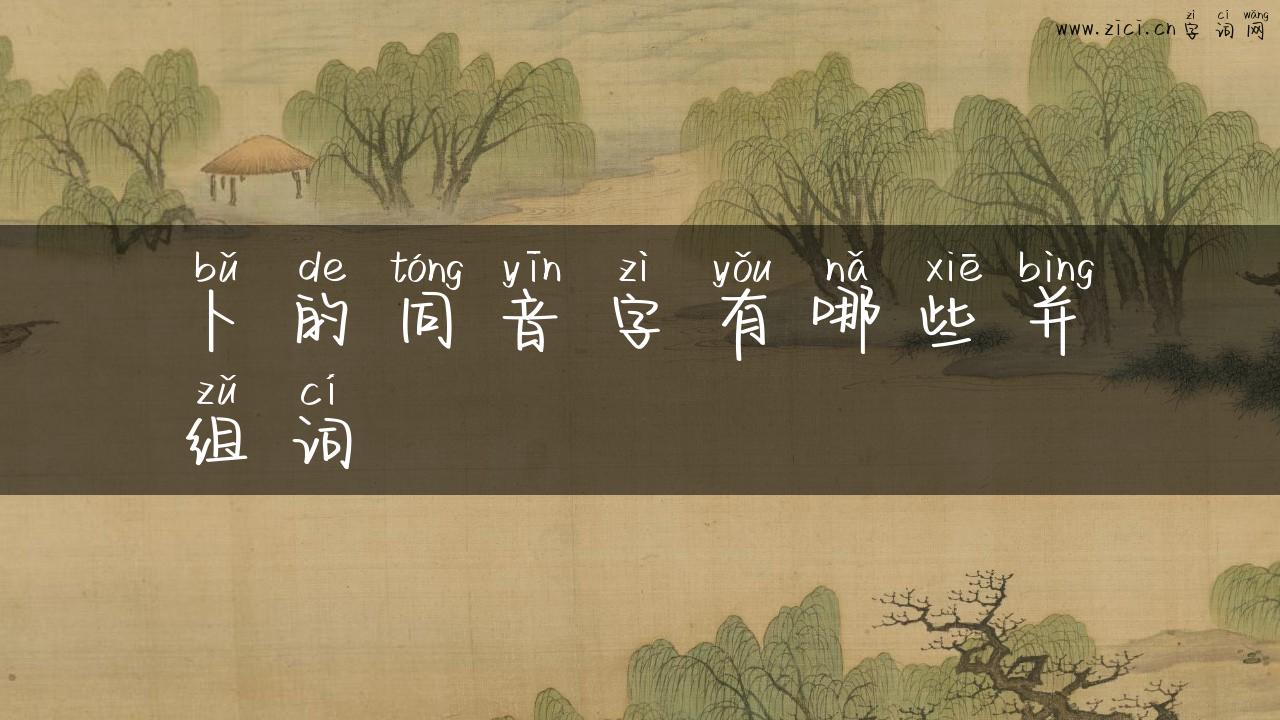 zì cí wǎng
www.zici.cn 字 词 网
bǔ de tóng yīn zì yǒu nǎ xiē bìng
卜 的 同 音 字 有 哪 些 并
zǔ cí
组 词